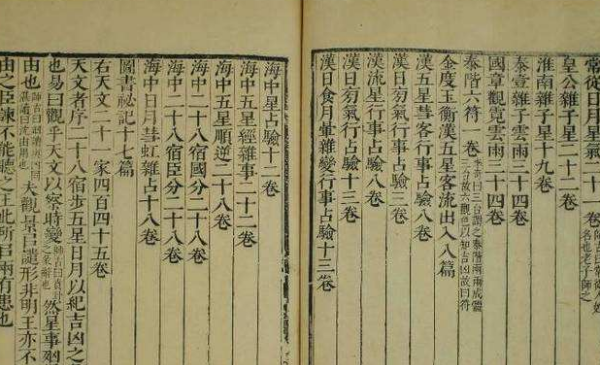 常從日月星氣二十一卷
皇公雜子星二十二卷
淮南雜子星十九卷
泰壹雜子雲雨三十四卷
國章觀霓雲雨三十四卷
泰階六符一卷
金度玉衡漢五星客流出入八篇
漢五星彗客行事占驗八卷
漢日旁氣行事占驗三卷
漢流星行事占驗八卷
漢日旁氣行占驗十三卷
漢日食月暈雜變行事占驗十三卷
海中星占驗十二卷
海中五星經雜事二十二卷
海中五星順逆二十八卷
海中二十八宿國分二十八卷
海中二十八宿臣分二十八卷
海中日月彗虹雜占十八卷
圖書祕記十七篇
右天文二十一家四百四十五卷
天文者序二十八宿步五星日月以紀吉凶之
也易曰觀乎天文以察時變 然星事
由也 夫觀景以譴形非明王亦不
由之臣諫不能聽之王此所以兩有患也